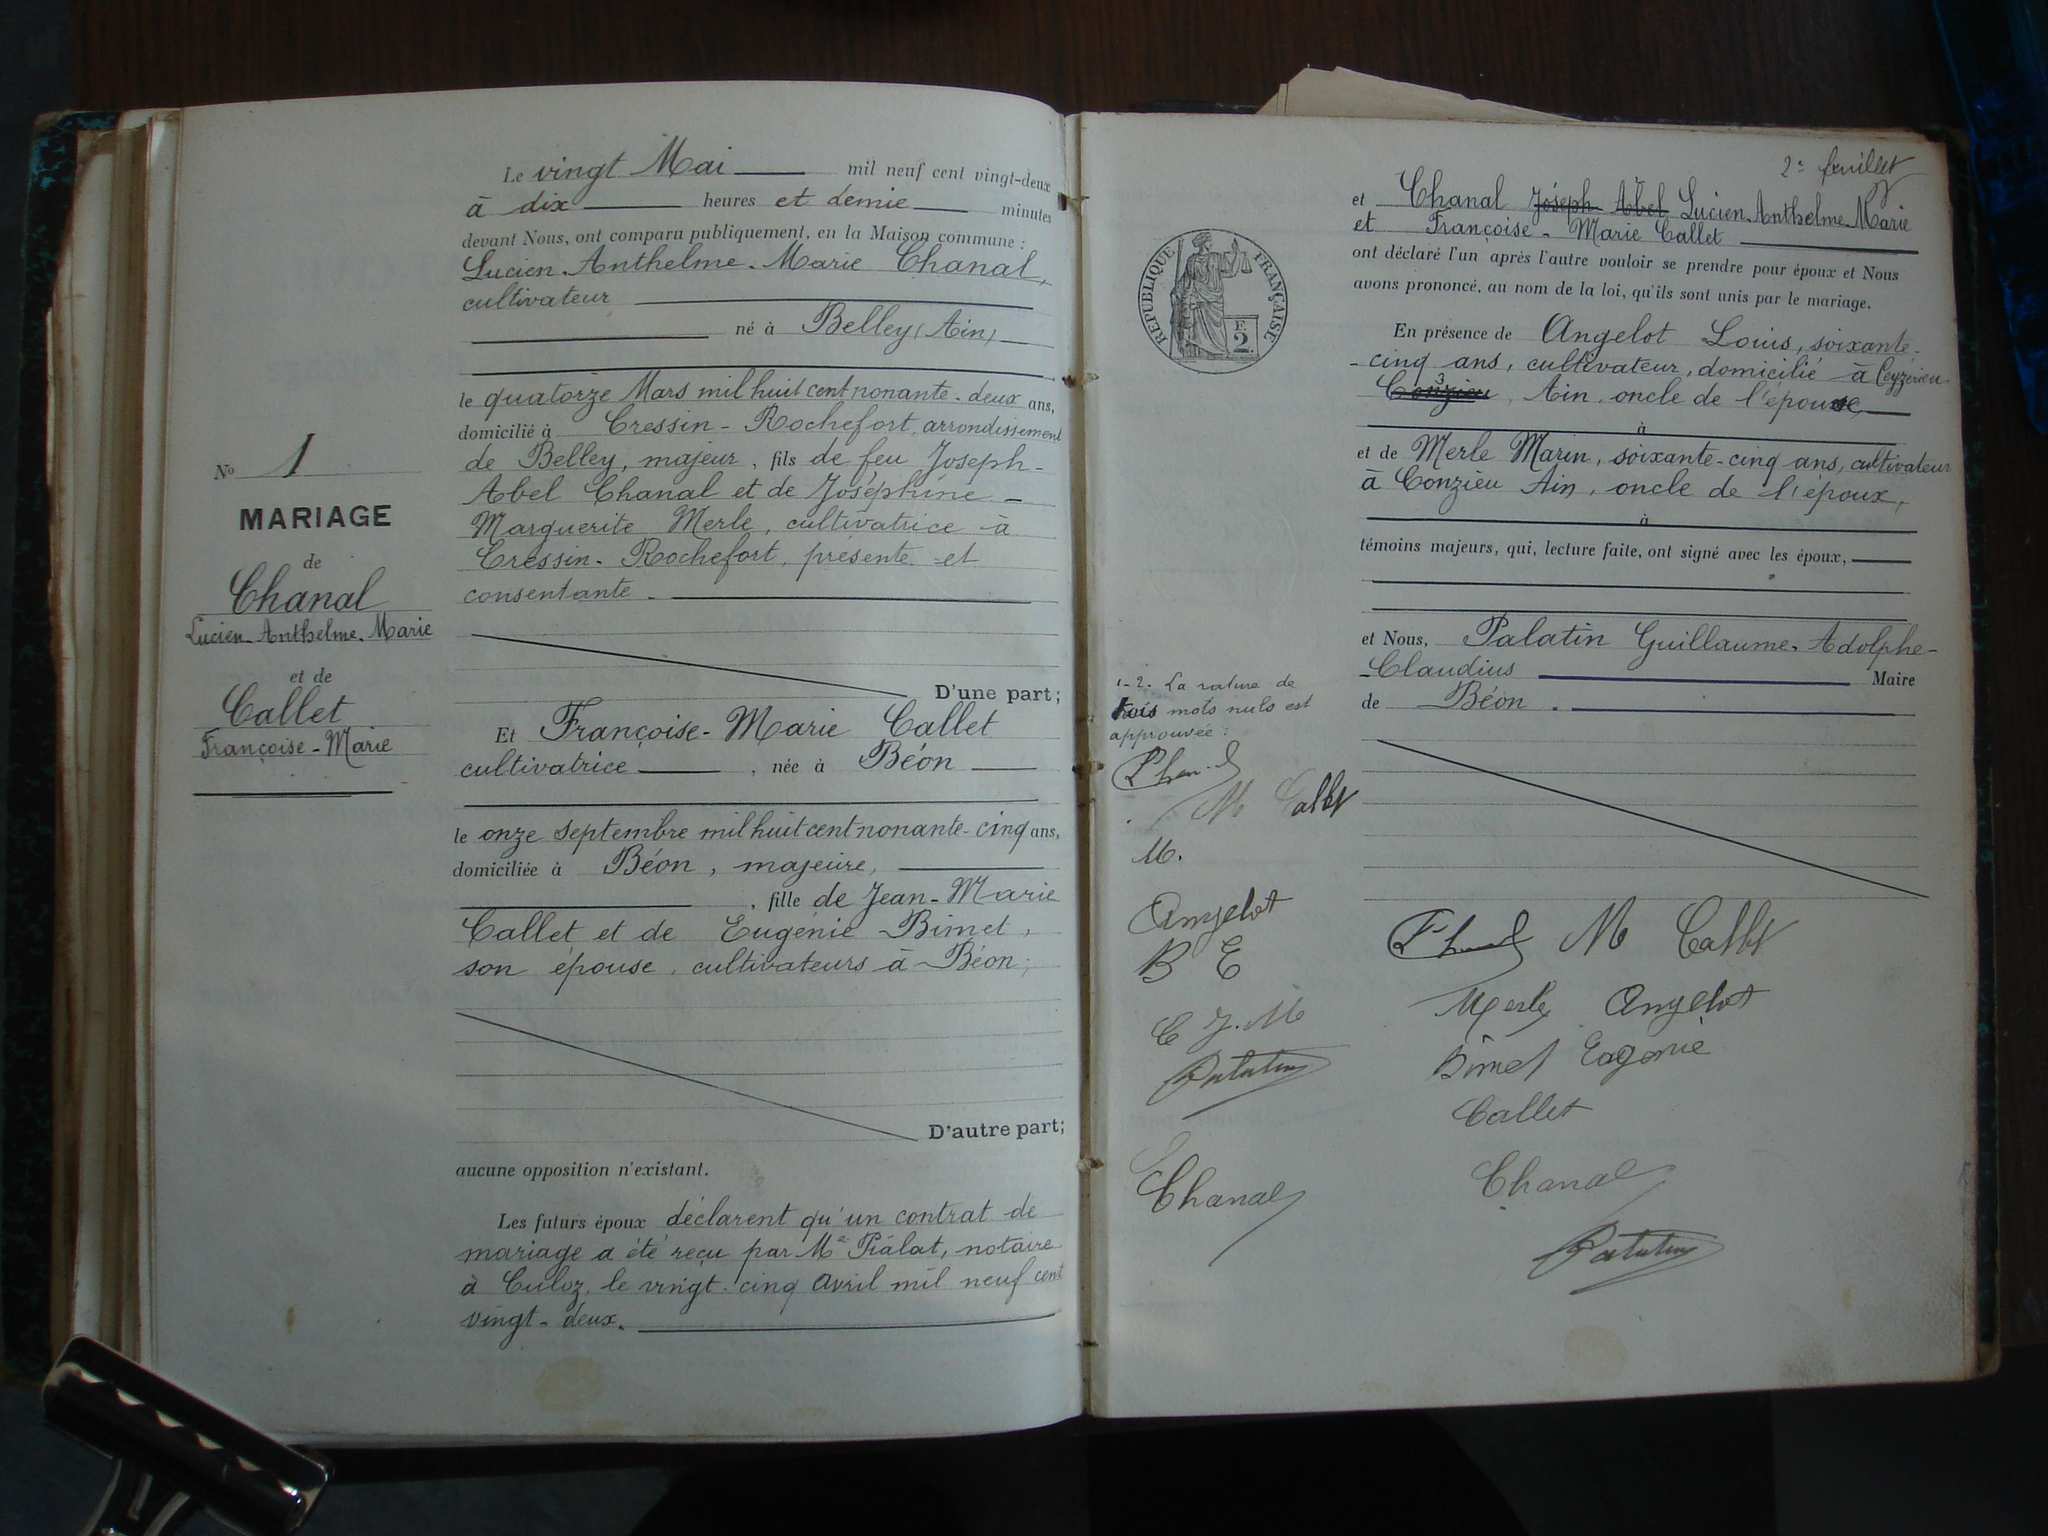 Le vingt Mai mil neuf cent vingt-deux
à dix heures et demie minutes
devant Nous, ont comparu publiquement, en la Maison commune :
Lucien-Anthelme-Marie Chanal,
cultivateur
né à Belley (Ain)
le quatorze Mars mil huit cent nonante-deux ans,
domicilié à Cressin-Rochefort, arrondissement
de Belley, majeur, fils de feu Joseph-
Abel Chanal et de Joséphine-
Marguerite Merle, cultivatrice à
Cressin-Rochefort, présente et
consentante.
D'une part;
Et Françoise-Marie Callet
cultivatrice, née à Béon
le onze septembre mil huit cent nonante-cinq ans,
domiciliée à Béon, majeure,
, fille de Jean-Marie
Callet et de Eugénie Bimet,
son épouse, cultivateurs à Béon;
D'autre part;
aucune opposition n'existant.
Les futurs époux déclarent qu'un contrat de
mariage a été reçu par Me Pialat, notaire
à Culoz, le vingt-cinq avril mil neuf cent
vingt-deux.
No 1
MARIAGE
de
Chanal
Lucien-Anthelme-Marie
et de
Callet
Françoise-Marie
2e feuillet
et Chanal Joseph Abel Lucien-Anthelme-Marie
et Françoise-Marie Callet
ont déclaré l'un après l'autre vouloir se prendre pour époux et Nous
avons prononcé, au nom de la loi, qu'ils sont unis par le mariage.
En présence de Angelot Louis, soixante-
-cinq ans, cultivateur, domicilié à Ceyzérieu
Conzieu, Ain, oncle de l'épouse,
à
et de Merle Marin, soixante-cinq ans, cultivateur
à Conzieu Ain, oncle de l'époux,
à
témoins majeurs, qui, lecture faite, ont signé avec les époux,
et Nous, Palatin Guillaume-Adolphe-
-Claudius Maire
de Béon.
RÉPUBLIQUE FRANÇAISE
E
2
1-2- La rature de
trois mots nuls est
approuvée :
M Callet
M.
Angelot
B E
C J.M
Palatin
Chanal
M Callet
Merle Angelot
Bimet Eugénie
Callet
Chanal
Palatin